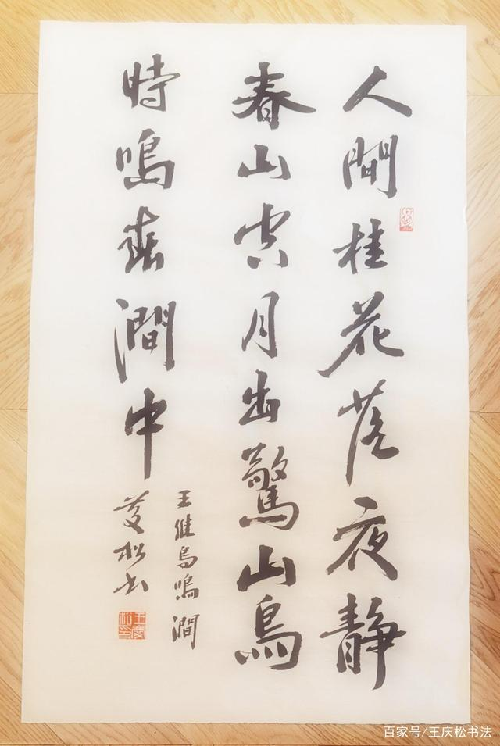 人間桂花落夜静
春山空月出驚山鳥
時鳴春澗中
王維鳥鳴澗
慶松書
百家号/王庆松书法